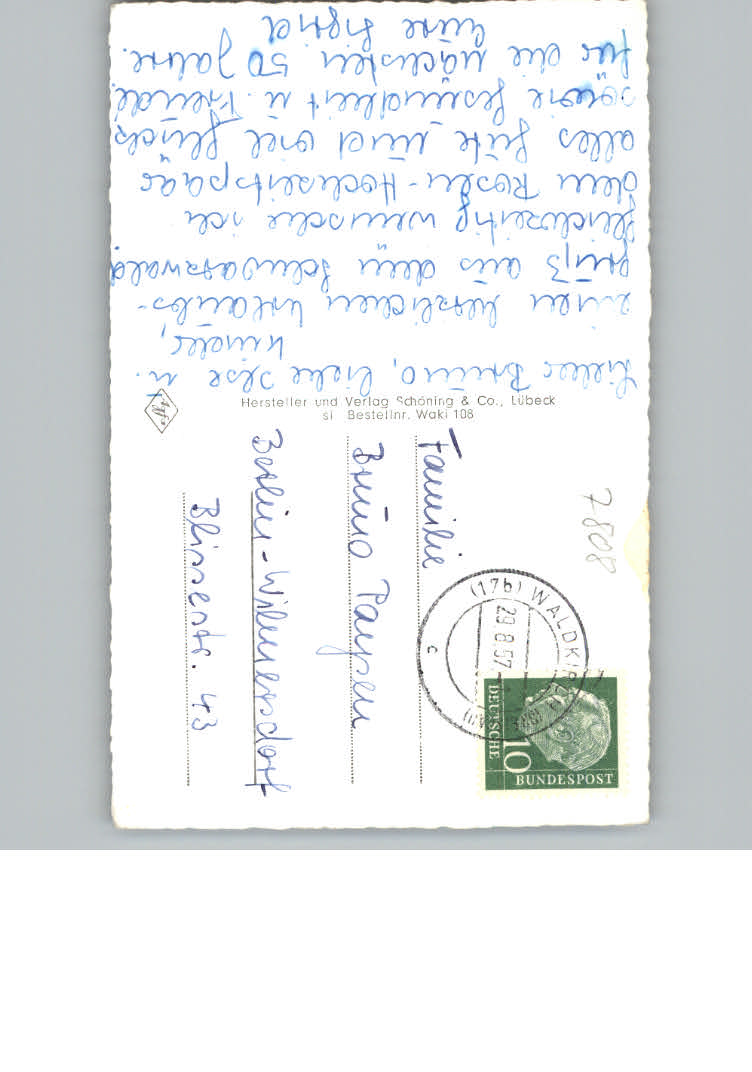 Lieber Bruno, liebe Ilse u.
Kinder,
einen herzlichen Urlaubs-
gruß aus dem Schwarzwald.
Gleichzeitig wünsche ich
dem Rosen-Hochzeitspaar
alles Gute und viel Glück
sowie Gesundheit u. Freude
für die nächsten 50 Jahre.
Eure Sigrid
Hersteller und Verlag Schöning & Co., Lübeck
si Bestellnr. Waki 108
Agfa
Familie
Bruno Paysen
Berlin-Wilmersdorf
Blissestr. 43
7808
(17b) WALDKIRCH
29.8.57
c
DEUTSCHE
BUNDESPOST
10